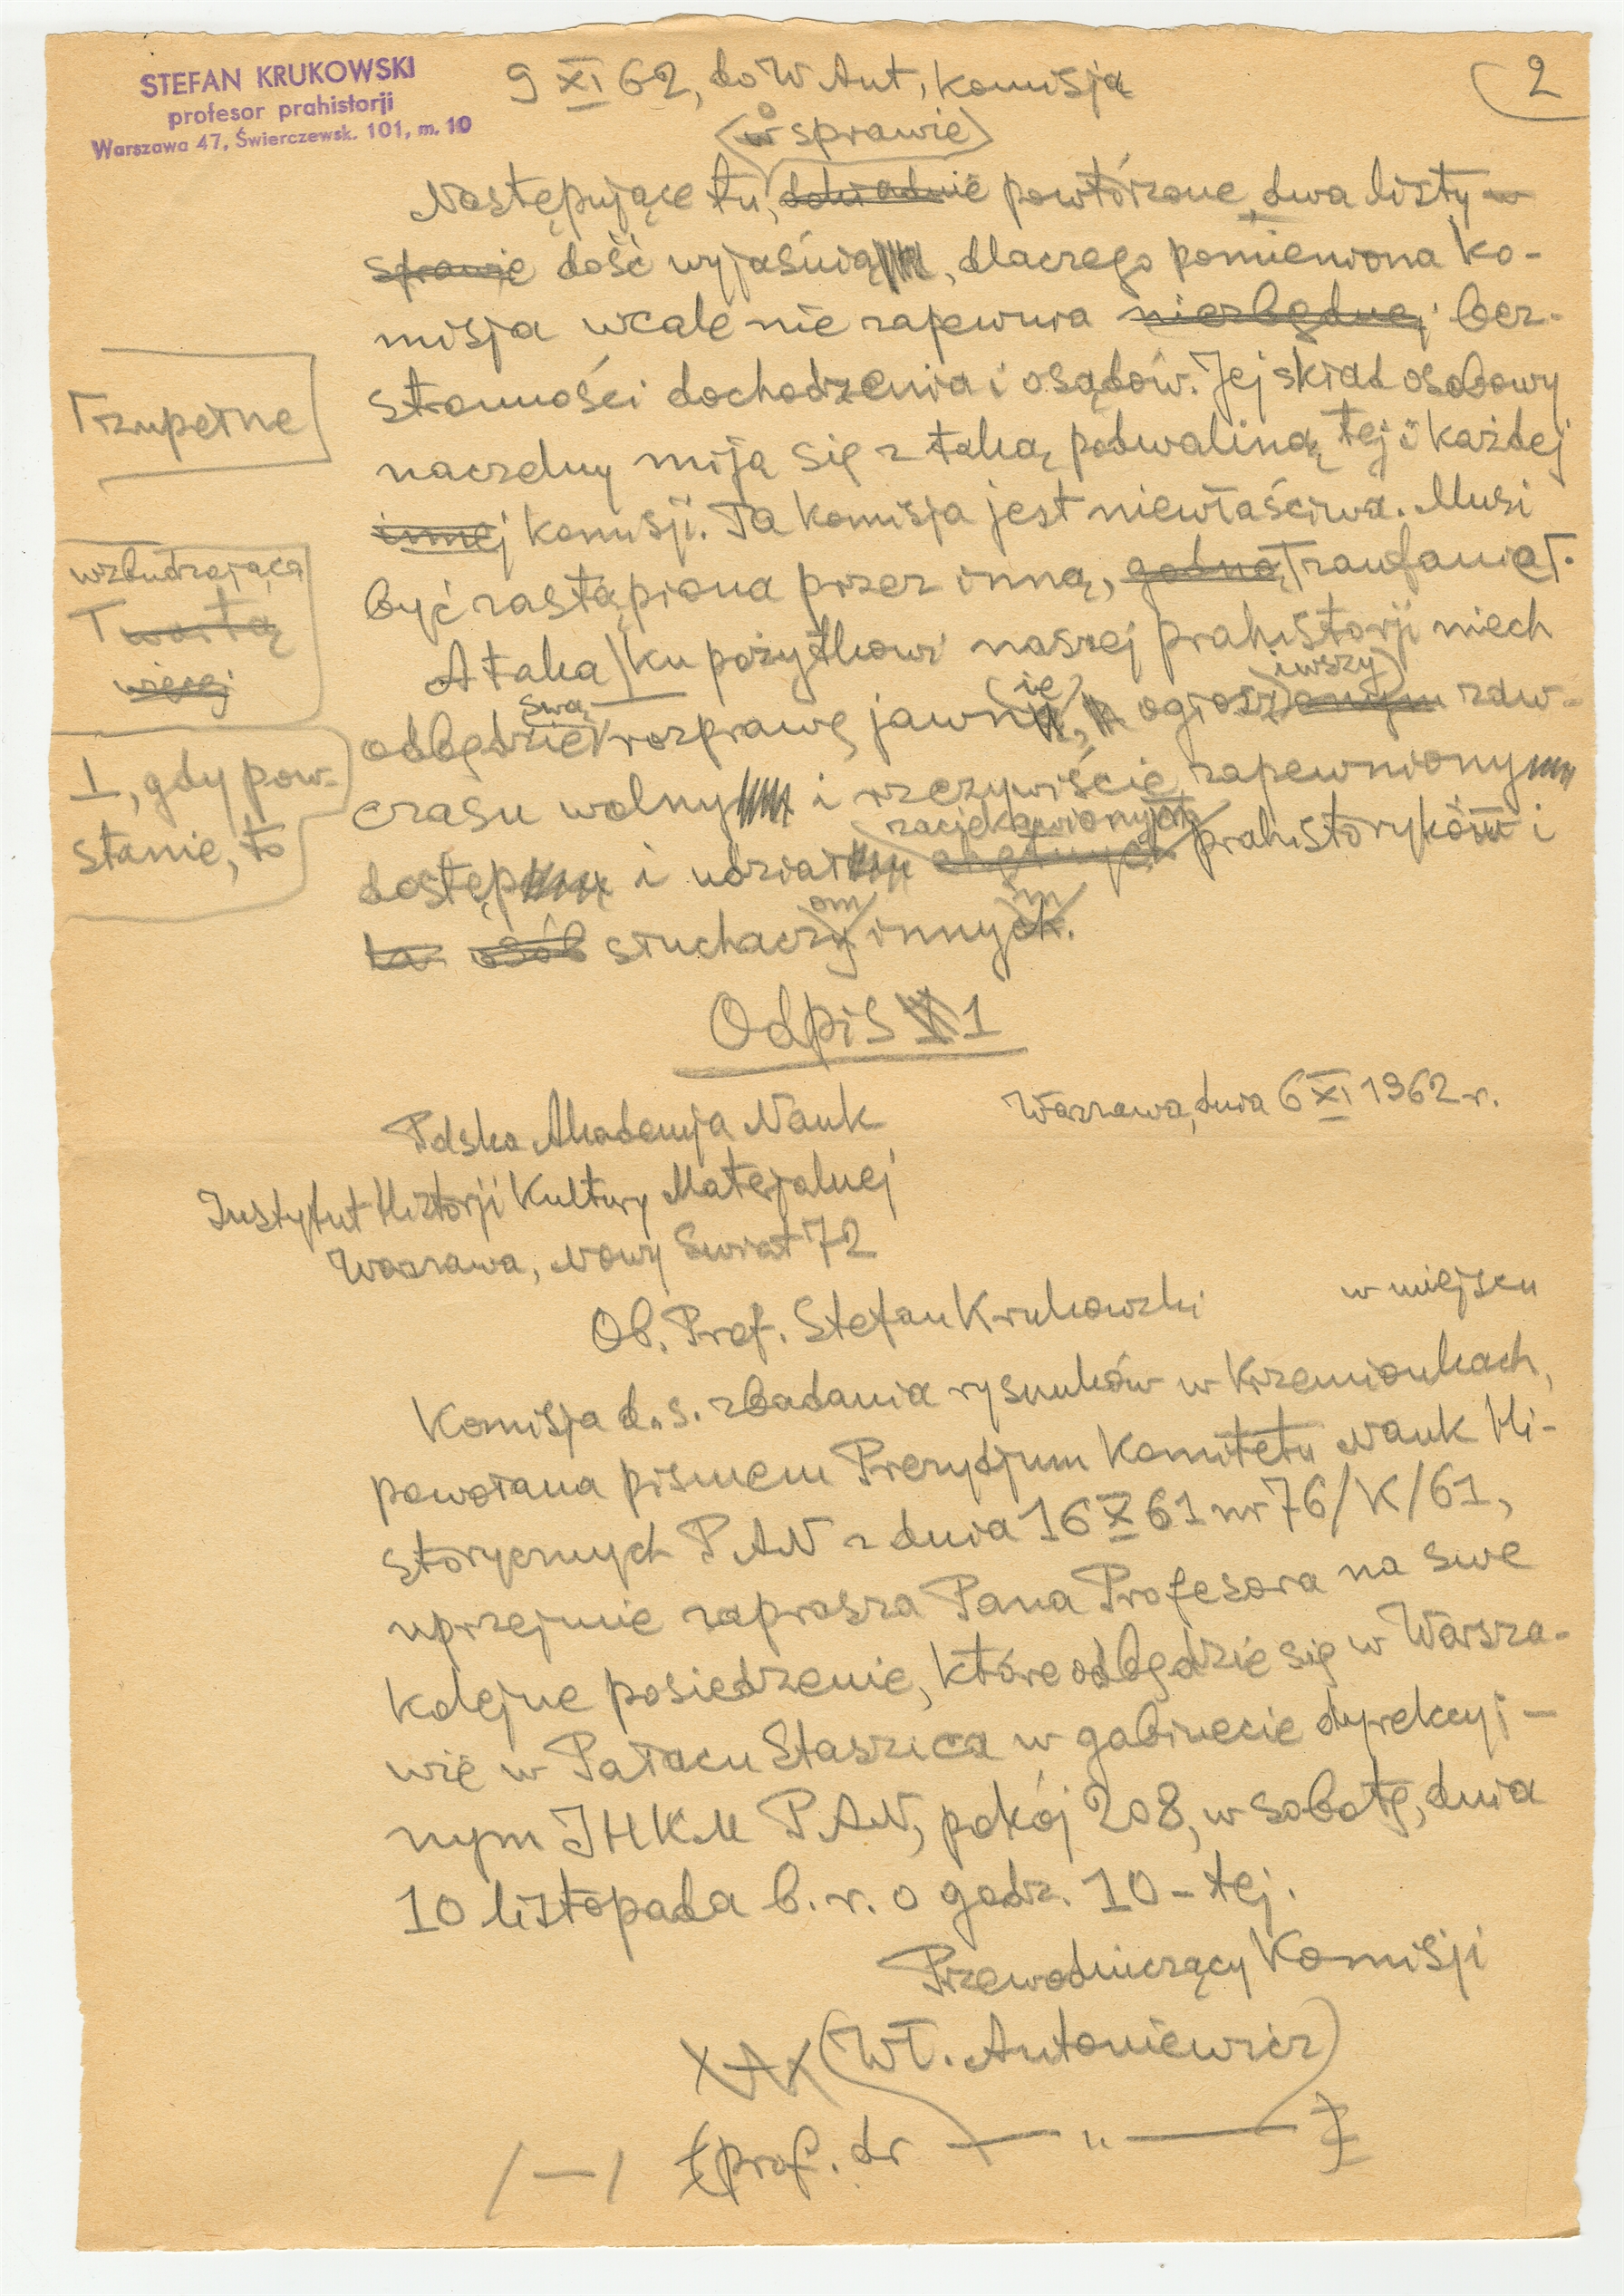 STEFAN KRUKOWSKI
profesor prahistorji
Warszawa 47, Świerczewsk. 101, m. 10
9 XI 62, do W Ant, Komisja
2
w sprawie
Następujące tu, dokładnie powtórzone, dwa listy w
sprawie dość wyjaśnią, dlaczego pomieniona Ko-
misja wcale nie zapewnia niezbędnej bez-
stronności dochodzenia i osądów. Jej skład osobowy
naczelny mija się z taką podwaliną tej i każdej
innej komisji. Ta Komisja jest niewłaściwa. Musi
być zastąpiona przez inną, godną zaufania.
zupełne
wzbudzającą
wartą
więcej
A taka ku pożytkowi naszej prahistorji niech
odbędzie swą rozprawę jawnie, ogłosiwszy zaw-
czasu wolny i rzeczywiście zapewniony
, gdy pow-
stanie, to
zaciekawionych
dostęp i udział chętnych prahistoryków i
om ym
osób słuchaczy innych.
Odpis 1
Polska Akademja Nauk
Warszawa, dnia 6 XI 1962 r.
Instytut Historji Kultury Materjalnej
Warszawa, Nowy Świat 72
Ob. Prof. Stefan Krukowski
w miejscu
Komisja d.s. zbadania rysunków w Krzemionkach,
powołana pismem Prezydjum Komitetu Nauk Hi-
storycznych PAN z dnia 16 X 61 nr 76/K/61,
uprzejmie zaprasza Pana Profesora na swe
kolejne posiedzenie, które odbędzie się w Warsza-
wie w Pałacu Staszica w gabinecie dyrekcyj-
nym IHKM PAN, pokój 208, w sobotę, dnia
10 listopada b.r. o godz. 10-tej.
Przewodniczący Komisji
(Wł. Antoniewicz)
/—/ (prof. dr — " —)